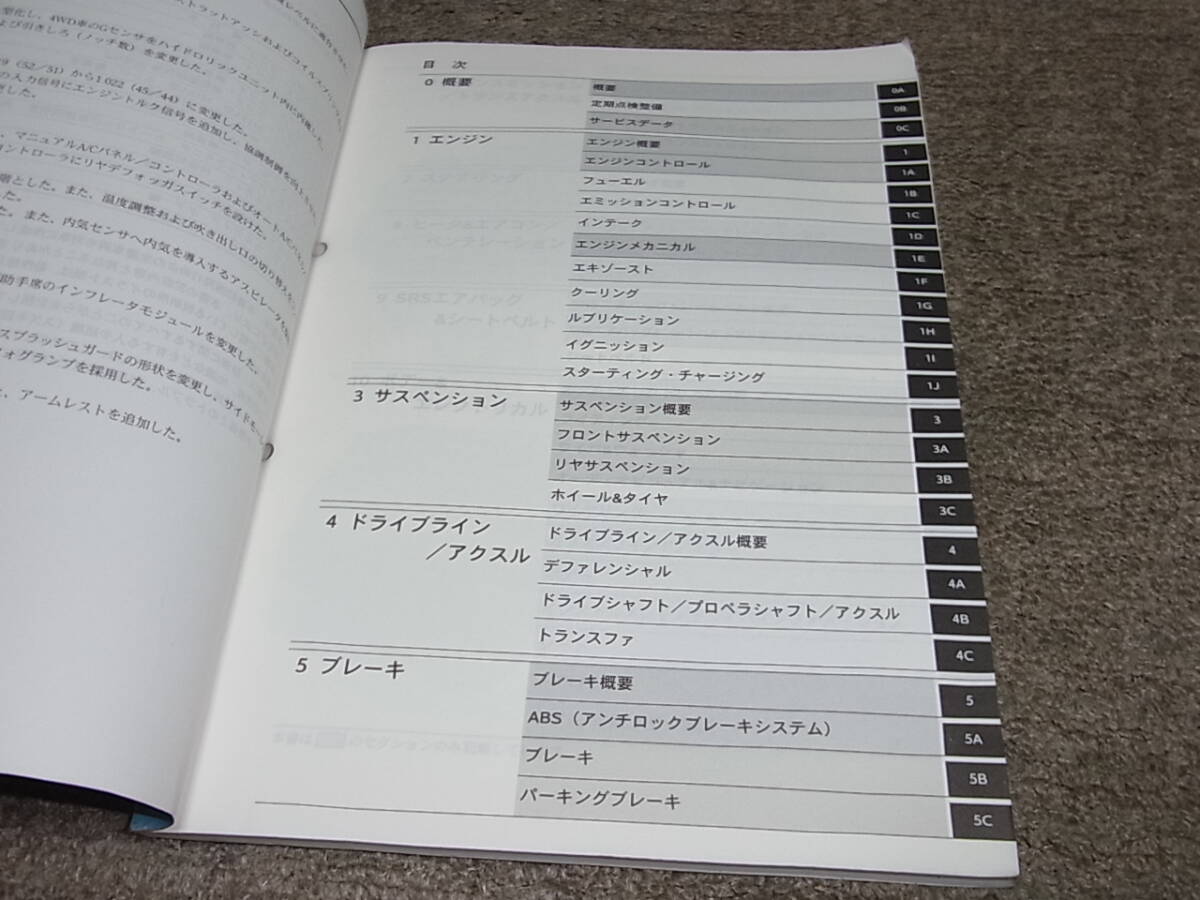 型化し、4WD車のGセンサをハイドロリックユニット内に内蔵した。
よび引きしろ（ノッチ数）を変更した。
9（52/51）から1 022（45/44）に変更した。
の入力信号にエンジントルク信号を追加し、協調制御を
更した。
、マニュアルA/Cパネル／コントローラおよびオートA/Cパネル
コントローラにリヤデフォッガスイッチを設けた。
階とした。また、温度調整および吹き出し口の切り替えを
した。
た。また、内気センサへ内気を導入するアスピレータを
助手席のインフレータモジュールを変更した。
スプラッシュガードの形状を変更し、サイド
フォグランプを採用した。
、アームレストを追加した。
目 次
0 概要
概要 0A
定期点検整備 0B
サービスデータ 0C
1 エンジン
エンジン概要 1
エンジンコントロール 1A
フューエル 1B
エミッションコントロール 1C
インテーク 1D
エンジンメカニカル 1E
エキゾースト 1F
クーリング 1G
ルブリケーション 1H
イグニッション 1I
スターティング・チャージング 1J
3 サスペンション
サスペンション概要 3
フロントサスペンション 3A
リヤサスペンション 3B
ホイール&タイヤ 3C
4 ドライブライン
／アクスル
ドライブライン／アクスル概要 4
デファレンシャル 4A
ドライブシャフト／プロペラシャフト／アクスル 4B
トランスファ 4C
5 ブレーキ
ブレーキ概要 5
ABS（アンチロックブレーキシステム） 5A
ブレーキ 5B
パーキングブレーキ 5C